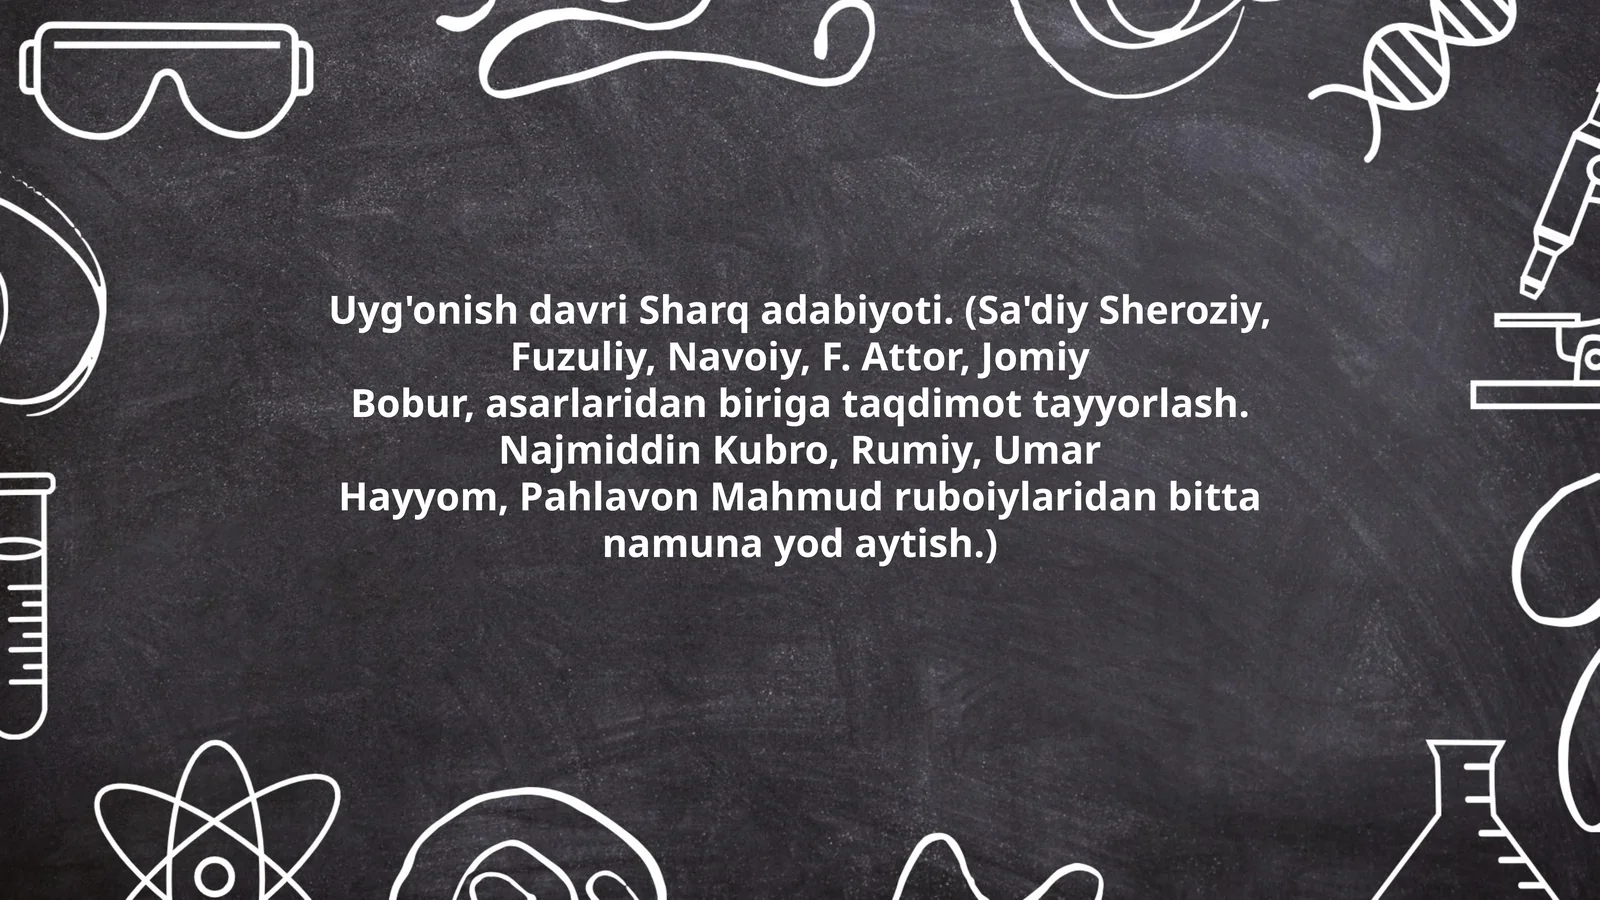 Uyg'onish davri Sharq adabiyoti. (Sa'diy Sheroziy,
Fuzuliy, Navoiy, F. Attor, Jomiy
Bobur, asarlaridan biriga taqdimot tayyorlash.
Najmiddin Kubro, Rumiy, Umar
Hayyom, Pahlavon Mahmud ruboiylaridan bitta
namuna yod aytish.)